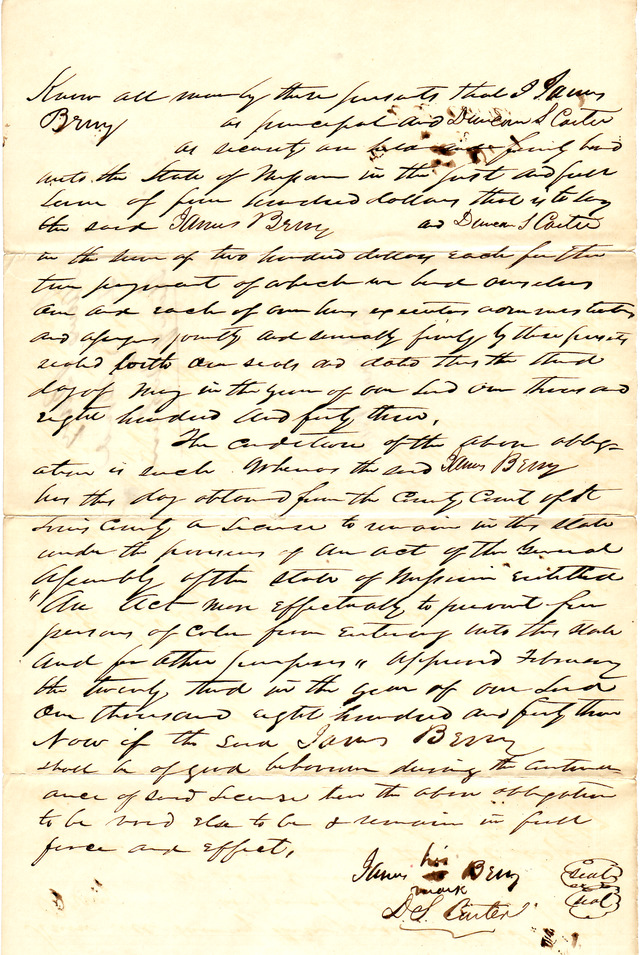 Know all men by these presents that I James
Berry as principal and Duncan S Carter
as security are held and firmly bond
unto the State of Missouri in the just and full
Sum of four hundred dollars that is to say
the said James Berry and Duncan S Carter
in the sum of two hundred dollars each for the
true payment of which we bind ourselves
our and each of our heirs executors administrators
and assigns jointly and severally firmly by these presents
sealed with our seals and dated this the third
day of May in the year of our Lord one thousand
eight hundred and forty three.
The condition of the above oblig-
ation is such Whereas the said James Berry
has this day obtained from the County Court of St
Louis County a License to remain in this state
under the provisions of an act of the General
Assembly of the State of Missouri Entitled
"An Act more Effectually to prevent free
persons of Color from Entering into this State
and for other purposes" approved February
the twenty third in the year of our Lord
One thousand eight hundred and forty three
Now if the said James Berry
shall be of good behaviour during the continu-
ance of said License then the above obligation
to be void else to be & remain in full
force and effect.
his
James Berry seal
mark
D.S. Carter seal